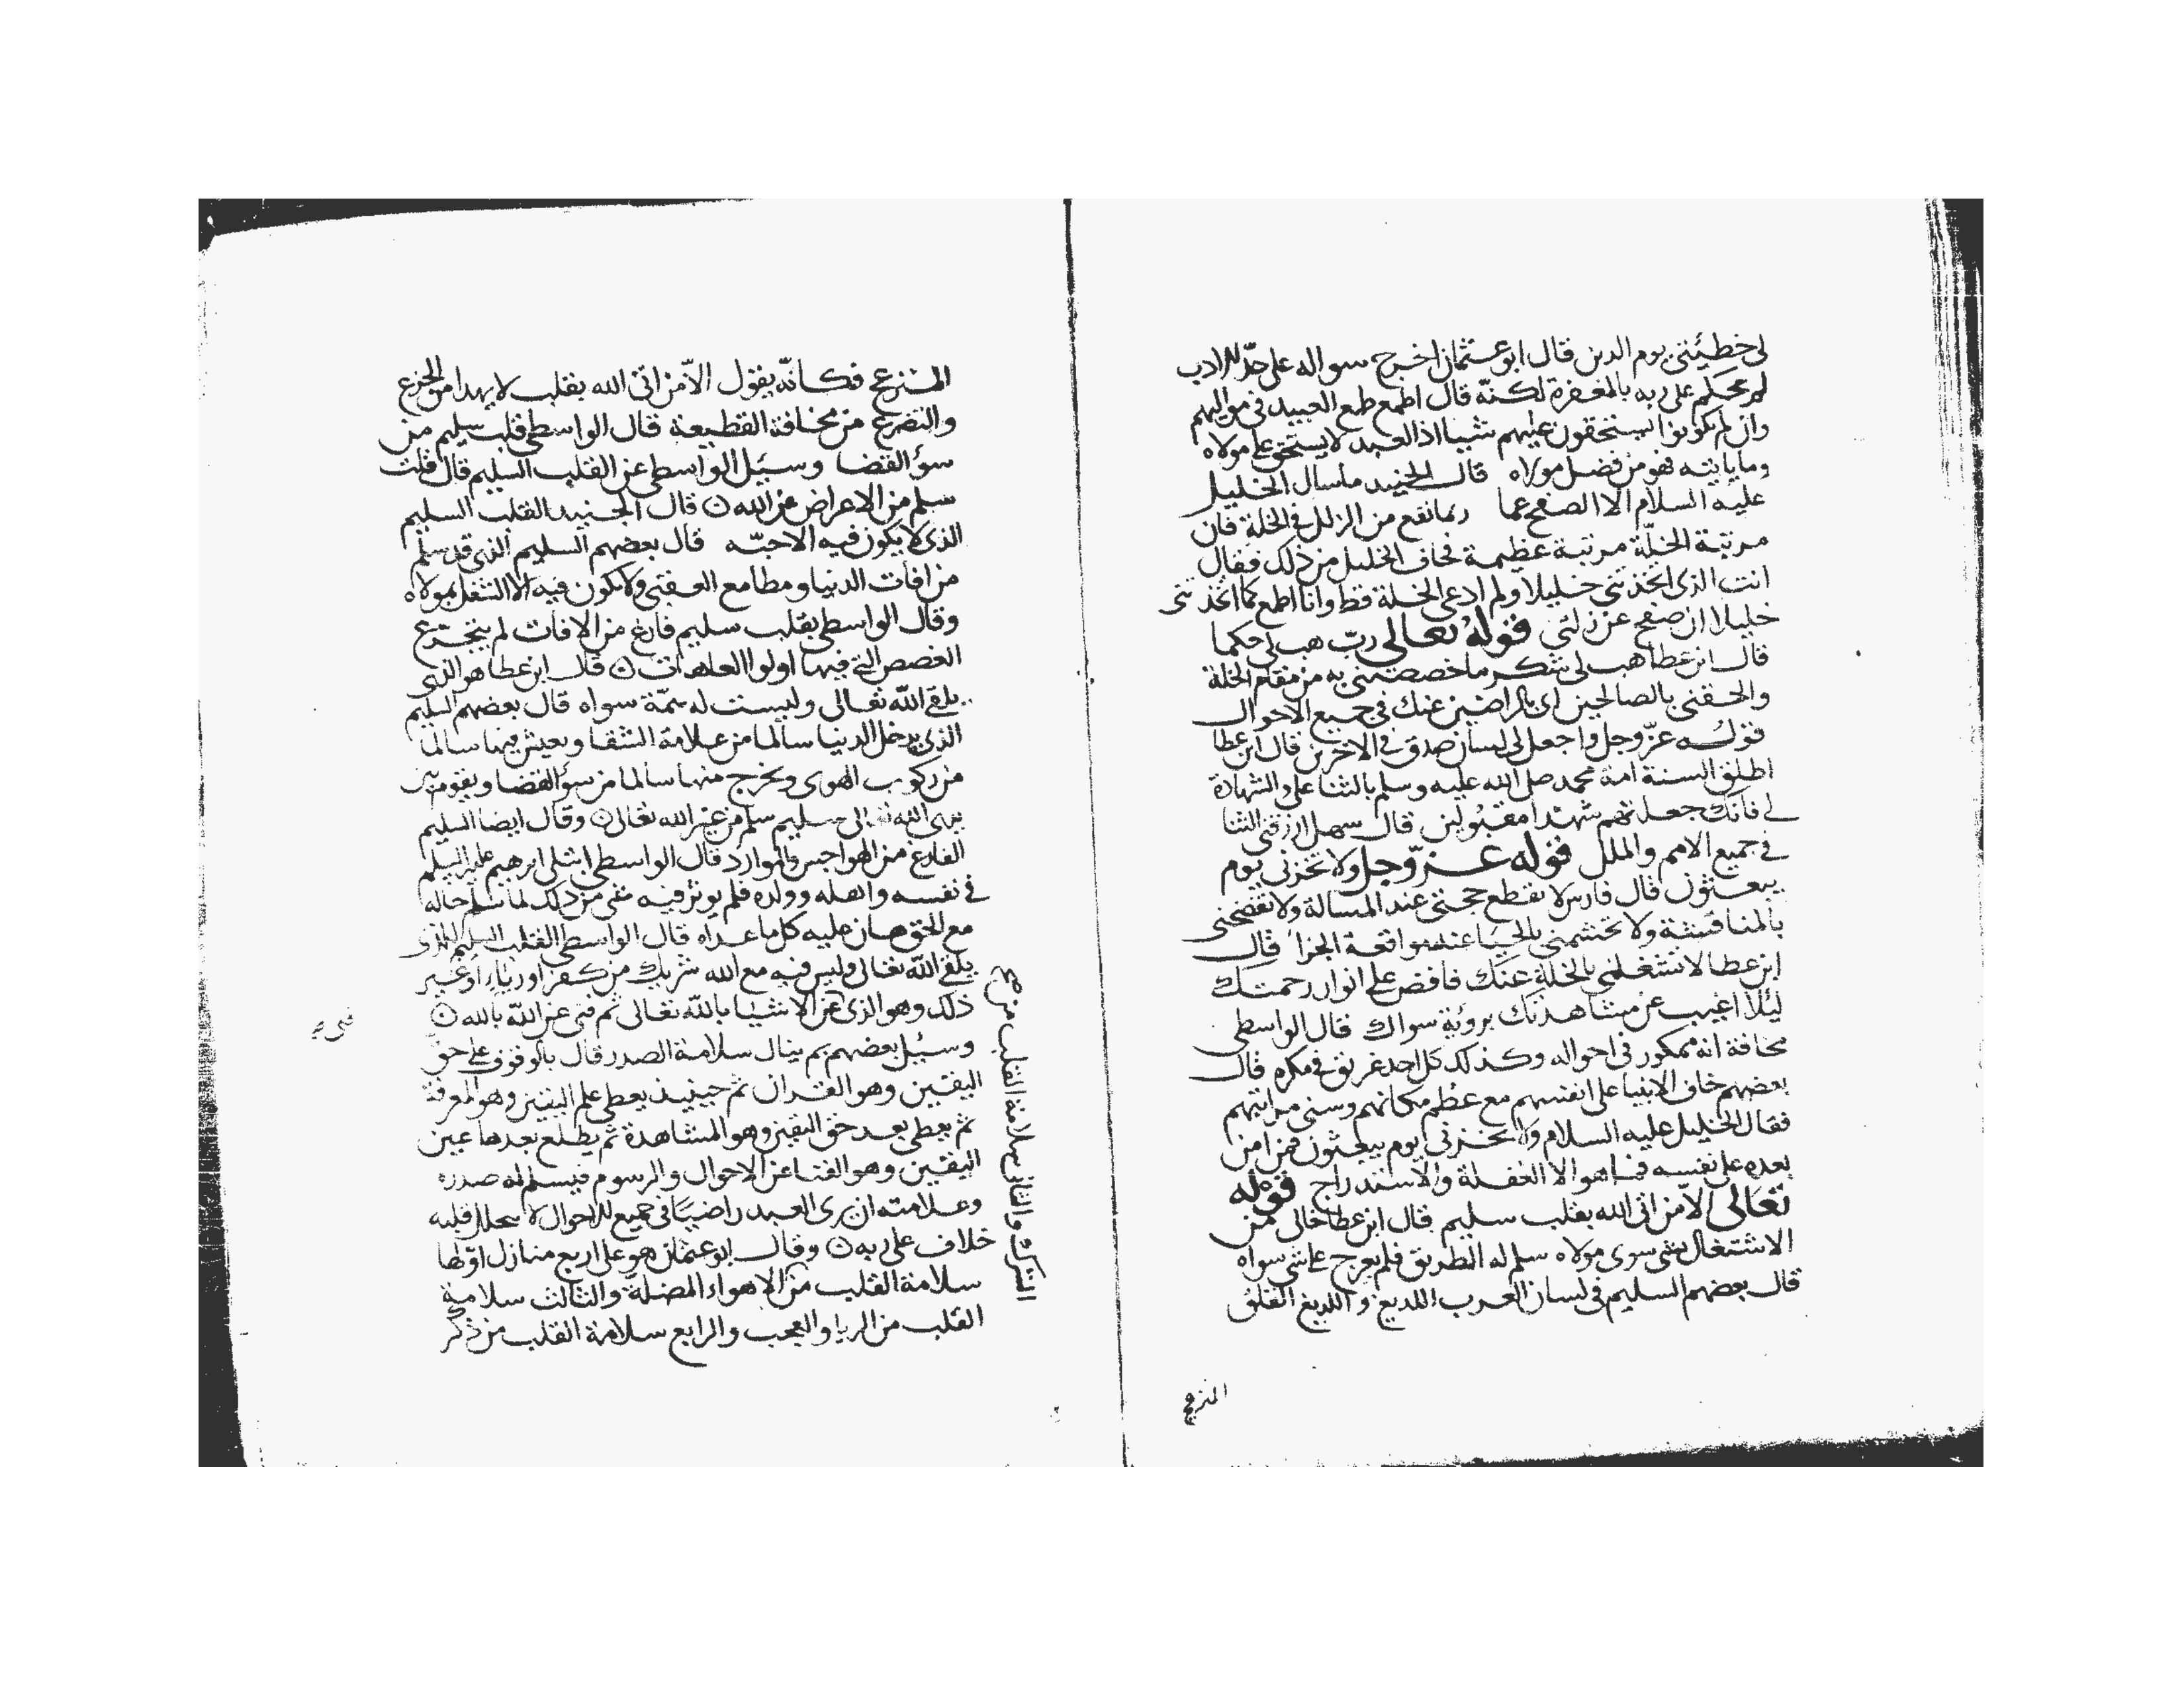 لى خطيئتى يوم الدين قال ابو عثمان اخرج سواله على حد الادب
لم يحكم على ربه بالمغفرة لكنه قال اطمع طمع العبيد فى مواليهم
وان لم يكونوا يستحقون عليهم شيا اذ العبد لا يستحق على مولاه
وما يأتيه فهو من فضل مولاه قال الجنيد ما سال الخليل
عليه السلام الا الصفح عما ربما تقع من الزلل فى الخلة فان
مرتبة الخلّة مرتبة عظيمة فخاف الخليل من ذلك فقال
انت الذى اتخذتنى خليلا ولم ادعى الخلة قط وانا اطمع كما اتخذتنى
خليلا ان تصفح عن زلتى قوله تعالى ربّ هب لى حكما
قال ابن عطا هب لى شكر ما خصصتنى به من مقام الخلة
والحقنى بالصالحين اى بالراضين عنك فى جميع الاحوال
قوله عزّ وجل واجعل لى لسان صدق فى الاخرين قال ابن عطا
اطلق السنة امة محمد صلى الله عليه وسلم بالثنا على والشهادة
لى فانك جعلتهم شهدا مقبولين قال سهل ارزقنى الثنا
فى جميع الامم والملل قوله عزّ وجل ولا تخزنى يوم
يبعثون قال فارس لا تقطع حجتى عند المسالة ولا تفضحنى
بالمناقشة ولا تحشمنى بالحيا عند مواقعة الجزا قال
ابن عطا لا تشغلنى بالخلة عنك فافض على انوار رحمتك
ليلا اغيب عن مشاهدتك برؤية سواك قال الواسطى
مخافة انه ممكور فى احواله وكذلك كل احد غريق فى مكره قال
بعضهم خاف الانبيا على انفسهم مع عظم مكانهم وسنى مراتبهم
فقال الخليل عليه السلام ولا تخزنى يوم يبعثون فمن امن
بعده على نفسه فما هو الا الغفلة والاستدراج قوله
تعالى الا من اتى الله بقلب سليم قال ابن عطا خالى من
الاشتغال بشى سوى مولاه سلم له الطريق فلم يعرج على شى سواه
قال بعضهم السليم فى لسان العرب اللديغ واللديغ القلق
المنزعج
المنزعج فكانّه يقول الا من اتى الله بقلب لا يهدا من الجزع
والتضرع من مخافة القطيعة قال الواسطى قلب سليم من
سؤ القضا وسئل الواسطى عن القلب السليم قال قلت
سلم من الاعراض عن الله قال الجنيد القلب السليم
الذى لا يكون فيه الا حبّه قال بعضهم السليم الذى قد سلم
من افات الدنيا ومطامع العقبى ولا يكون فيه الا الشغل بمولاه
وقال الواسطى بقلب سليم فارغ من الافات لم يتجرع
الغصص التى فيها اولوا العاهات قال ابن عطا هو الذى
يلقى الله تعالى وليست له همّة سواه قال بعضهم السليم
الذى يدخل الدنيا سالما من علامة الشقا ويعيش فيها سالما
من ركوب الهوى ويخرج منها سالما من سؤ القضا ويقوم بين
يدى الله تعالى سليم سلم من غير الله تعالى وقال ايضا السليم
الفارغ من الهواجس والموارد قال الواسطى ابتلى ابرهيم عليه السلم
فى نفسه واهله وولده فلم يوثر فيه شى من ذلك لما سلم حاله
مع الحق هان عليه كل ما عداه قال الواسطى القلب السليم الذى
يلقى الله تعالى وليس فيه مع الله شريك من كفر او رياء او غير
ذلك وهو الذى عن الاشيا بالله تعالى ثم فنى عن الله بالله
وسئل بعضهم بم ينال سلامة الصدر قال بالوقوف على حق
اليقين وهو القران ثم حينيذ يعطى علم اليقين وهو المعرفة
ثم يعطى بعد حق اليقين وهو المشاهدة ثم يطلع بعدها عين
اليقين وهو الفنا عن الاحوال والرسوم فيسلم له صدره
وعلامته ان يرى العبد راضيا فى جميع الاحوال لا قلبه
خلاف على ربه وقال ابو عثمان هو على اربع منازل اوّلها
سلامة القلب من الاهواء المضلة والثالث سلامة
القلب من الريا والعجب والرابع سلامة القلب من ذكر
الشرك والثانى سلامة القلب من